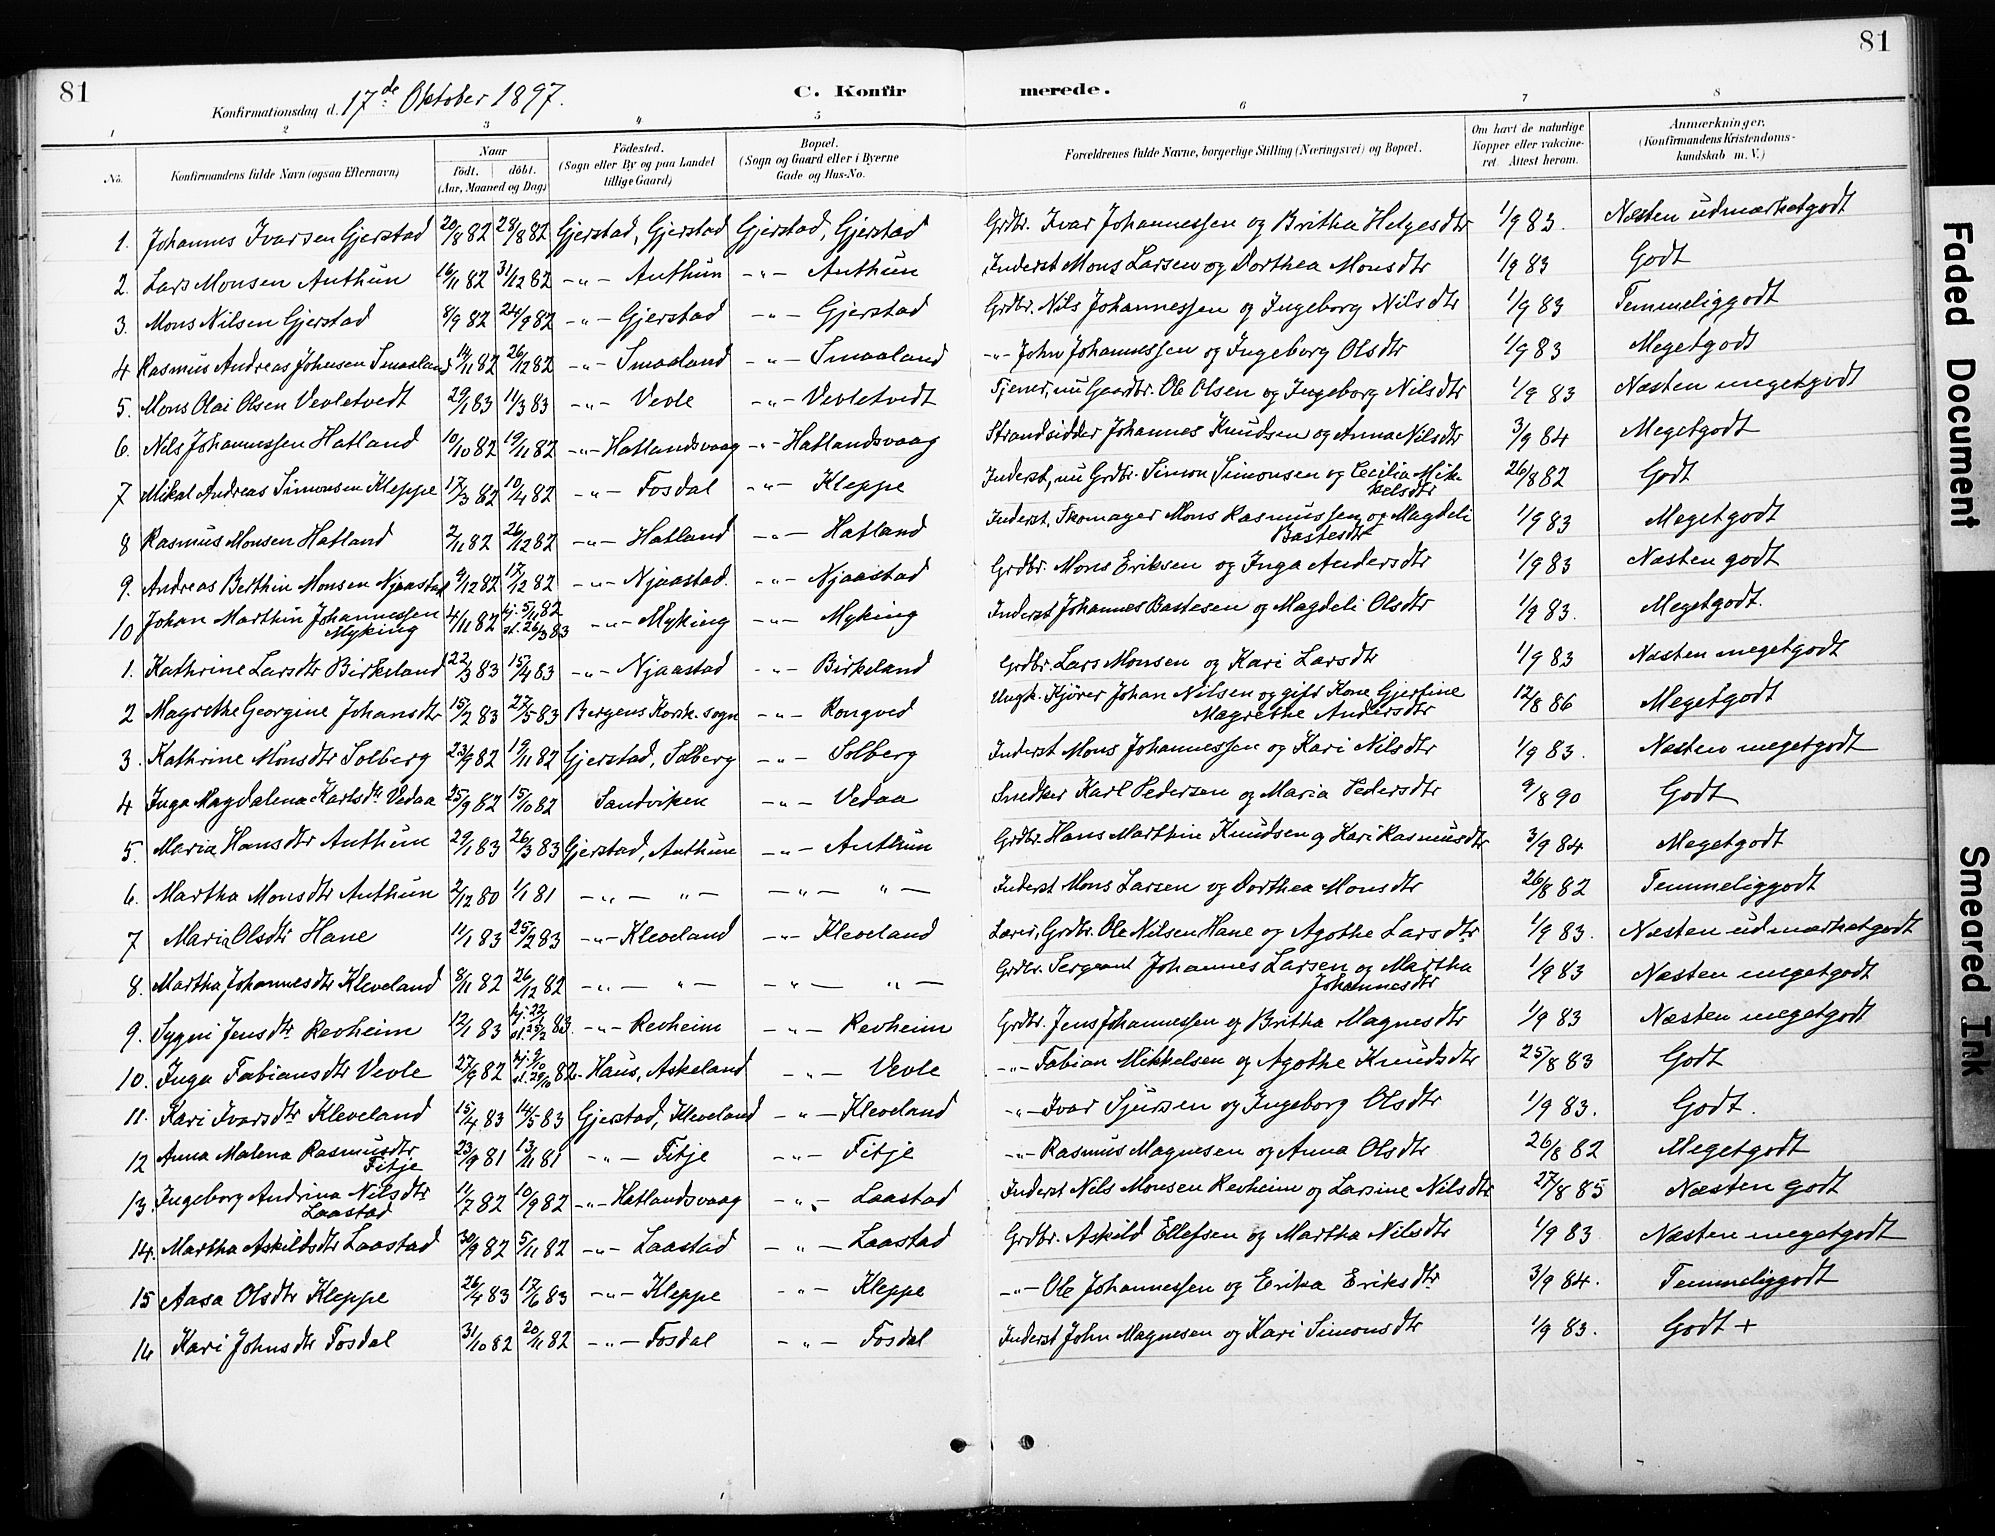 81
81
Konfirmationsdag d. 17de Oktober 1897.
C. Konfirmerede.
1 2 3 4 5 6 7 8
No. Konfirmandens fulde Navn (ogsaa Efternavn) Naar födt. döbt. (Aar, Maaned og Dag) Födested. (Sogn eller By og paa Landet tillige Gaard) Bopæl. (Sogn og Gaard eller i Byerne Gade og Hus-No. Forældrenes fulde Navne, borgerlige Stilling (Næringsvei) og Bopæl. Om havt de naturlige Kopper eller vaccineret. Attest herom. Anmærkninger. (Konfirmandens Kristendomskundskab m. V.)
1. Johannes Ivarsen Gjerstad 20/8 82 28/8 82 Gjerstad, Gjerstad Gjerstad, Gjerstad Grdbr. Ivar Johannessen og Britha Helgesdtr 1/9 83. Næsten udmærketgodt
2. Lars Monsen Anthun 16/11 82 31/12 82 -„- Anthun -„- Anthun Inderst Mons Larsen og Dorthea Monsdtr 1/9 83 Godt
3. Mons Nilsen Gjerstad 8/9 82 24/9 82 -„- Gjerstad -„- Gjerstad Grdbr. Nils Johannessen og Ingeborg Nilsdtr 1/9 83 Temmeliggodt
4 Rasmus Andreas Johnsen Smaaland 14/11 82 26/12 82 -„- Smaaland -„- Smaaland -„- John Johannessen og Ingeborg Olsdtr 1/9 83 Megetgodt
5. Mons Olai Olsen Vevletvedt 29/1 83 11/3 83 -„- Vevle -„- Vevletvedt Tjener, nu Gaardbr. Ole Olsen og Ingeborg Nilsdtr 1/9 83 Næsten megetgodt
6. Nils Johannessen Hatland 10/10 82 19/11 82 -„- Hatlandsvaag -„- Hatlandsvaag Strandsidder Johannes Knudsen og Anna Nilsdtr 3/9 84 Megetgodt
7 Mikal Andreas Simonsen Kleppe 17/3 82 10/4 82 -„- Fosdal -„- Kleppe Inderst, nu Grdbr. Simon Simonsen og Cecilia Mikkelsdtr 26/8 82 Godt
8 Rasmus Monsen Hatland 2/11 82 26/12 82 -„- Hatland -„- Hatland Inderst, Skomager Mons Rasmussen og Magdeli Bastesdtr 1/9 83 Megetgodt
9. Andreas Berthin Monsen Njaastad 9/12 82 17/12 82 -„- Njaastad. -„- Njaastad Grdbr. Mons Eriksen og Inga Andersdtr 1/9 83 Næsten godt
10 Johan Marthin Johannessen Myking 4/11 82 hj. 5/11 82 st. 26/3 83 -„- Myking -„- Myking Inderst Johannes Bastesen og Magdeli Olsdtr 1/9 83. Megetgodt.
1. Kathrine Larsdtr Birkeland 22/3 83 15/4 83 -„- Njaastad -„- Birkeland Grdbr. Lars Monsen og Kari Larsdtr 1/9 83 Næsten megetgodt
2 Magrethe Georgine Johansdtr 15/2 83 27/5 83 Bergens Korsk. sogn -„- Rongved Ungk. Kjører Johan Nilsen og gift Kone Gjertine Magrethe Andersdtr 12/8 86 Megetgodt
3. Kathrine Monsdtr Solberg 23/9 82 19/11 82 Gjerstad, Solberg -„- Solberg Inderst Mons Johannessen og Kari Nilsdtr 1/9 83. Næsten megetgodt
4 Inga Magdalena Karlsdtr Vedaa 25/9 82 15/10 82 Sandviken -„- Vedaa Snedker Karl Pedersen og Maria Pedersdtr 9/8 90 Godt
5. Maria Hansdtr Anthun 29/1 83 26/3 83 Gjerstad, Anthun -„- Anthun Grdbr. Hans Marthin Knudsen og Kari Rasmusdtr 3/9 84 Megetgodt
6. Martha Monsdtr Anthun 2/12 80 1/1 81 -„- „- -„- „- Inderst Mons Larsen og Dorthea Monsdtr 26/8 82 Temmeliggodt
7 Maria Olsdtr Hane 11/1 83 25/2 83 -„- Kleveland -„- Kleveland Lærer, Grdbr. Ole Nilsen Hane og Agothe Larsdtr 1/9 83. Næsten udmærketgodt
8. Martha Johannesdtr Kleveland 8/11 82 26/12 82 -„- „- -„- „- Grdbr. Sergeant Johannes Larsen og Martha Johannesdtr 1/9 83 Næsten megetgodt
9. Sygni Jensdtr Revheim 12/1 83 hj. 22/1 st. 25/2 83. -„- Revheim -„- Revheim Grdbr. Jens Johannessen og Britha Magnesdtr 1/9 83 Næsten megetgodt
10. Inga Fabiansdtr Vevle 27/9 82 hj. 9/10 st. 29/10 82 Haus, Askeland -„- Vevle -„- Fabian Mikkelsen og Agothe Knudsdtr 25/8 83 Godt
11. Kari Ivarsdtr Kleveland 15/4 83 14/5 83 Gjerstad, Kleveland -„- Kleveland -„- Ivar Sjursen og Ingeborg Olsdtr 1/9 83. Godt.
12 Anna Malena Rasmusdtr Fitje 23/9 81 13/11 81 -„- Fitje -„- Fitje -„- Rasmus Magnesen og Anna Olsdtr 26/8 82 Megetgodt
13. Ingeborg Andrina Nilsdtr Laastad 11/7 82 10/9 82 -„- Hatlandsvaag -„- Laastad Inderst Nils Monsen Revheim og Larsine Nilsdtr 27/8 85 Næsten godt
14. Martha Askildsdtr Laastad 30/9 82 5/11 82 -„- Laastad -„- Laastad Grdbr. Askild Ellefsen og Martha Nilsdtr 1/9 83 Næsten megetgodt
15 Aasa Olsdtr Kleppe 26/4 83 17/6 83 -„- Kleppe -„- Kleppe -„- Ole Johannessen og Erika Eriksdtr 3/9 84. Temmeliggodt
16 Kari Johnsdtr Fosdal 31/10 82 20/11 82 -„- Fosdal -„- Fosdal Inderst John Magnesen og Kari Simonsdtr 1/9 83. Godt +
Faded Document
Smeared Ink